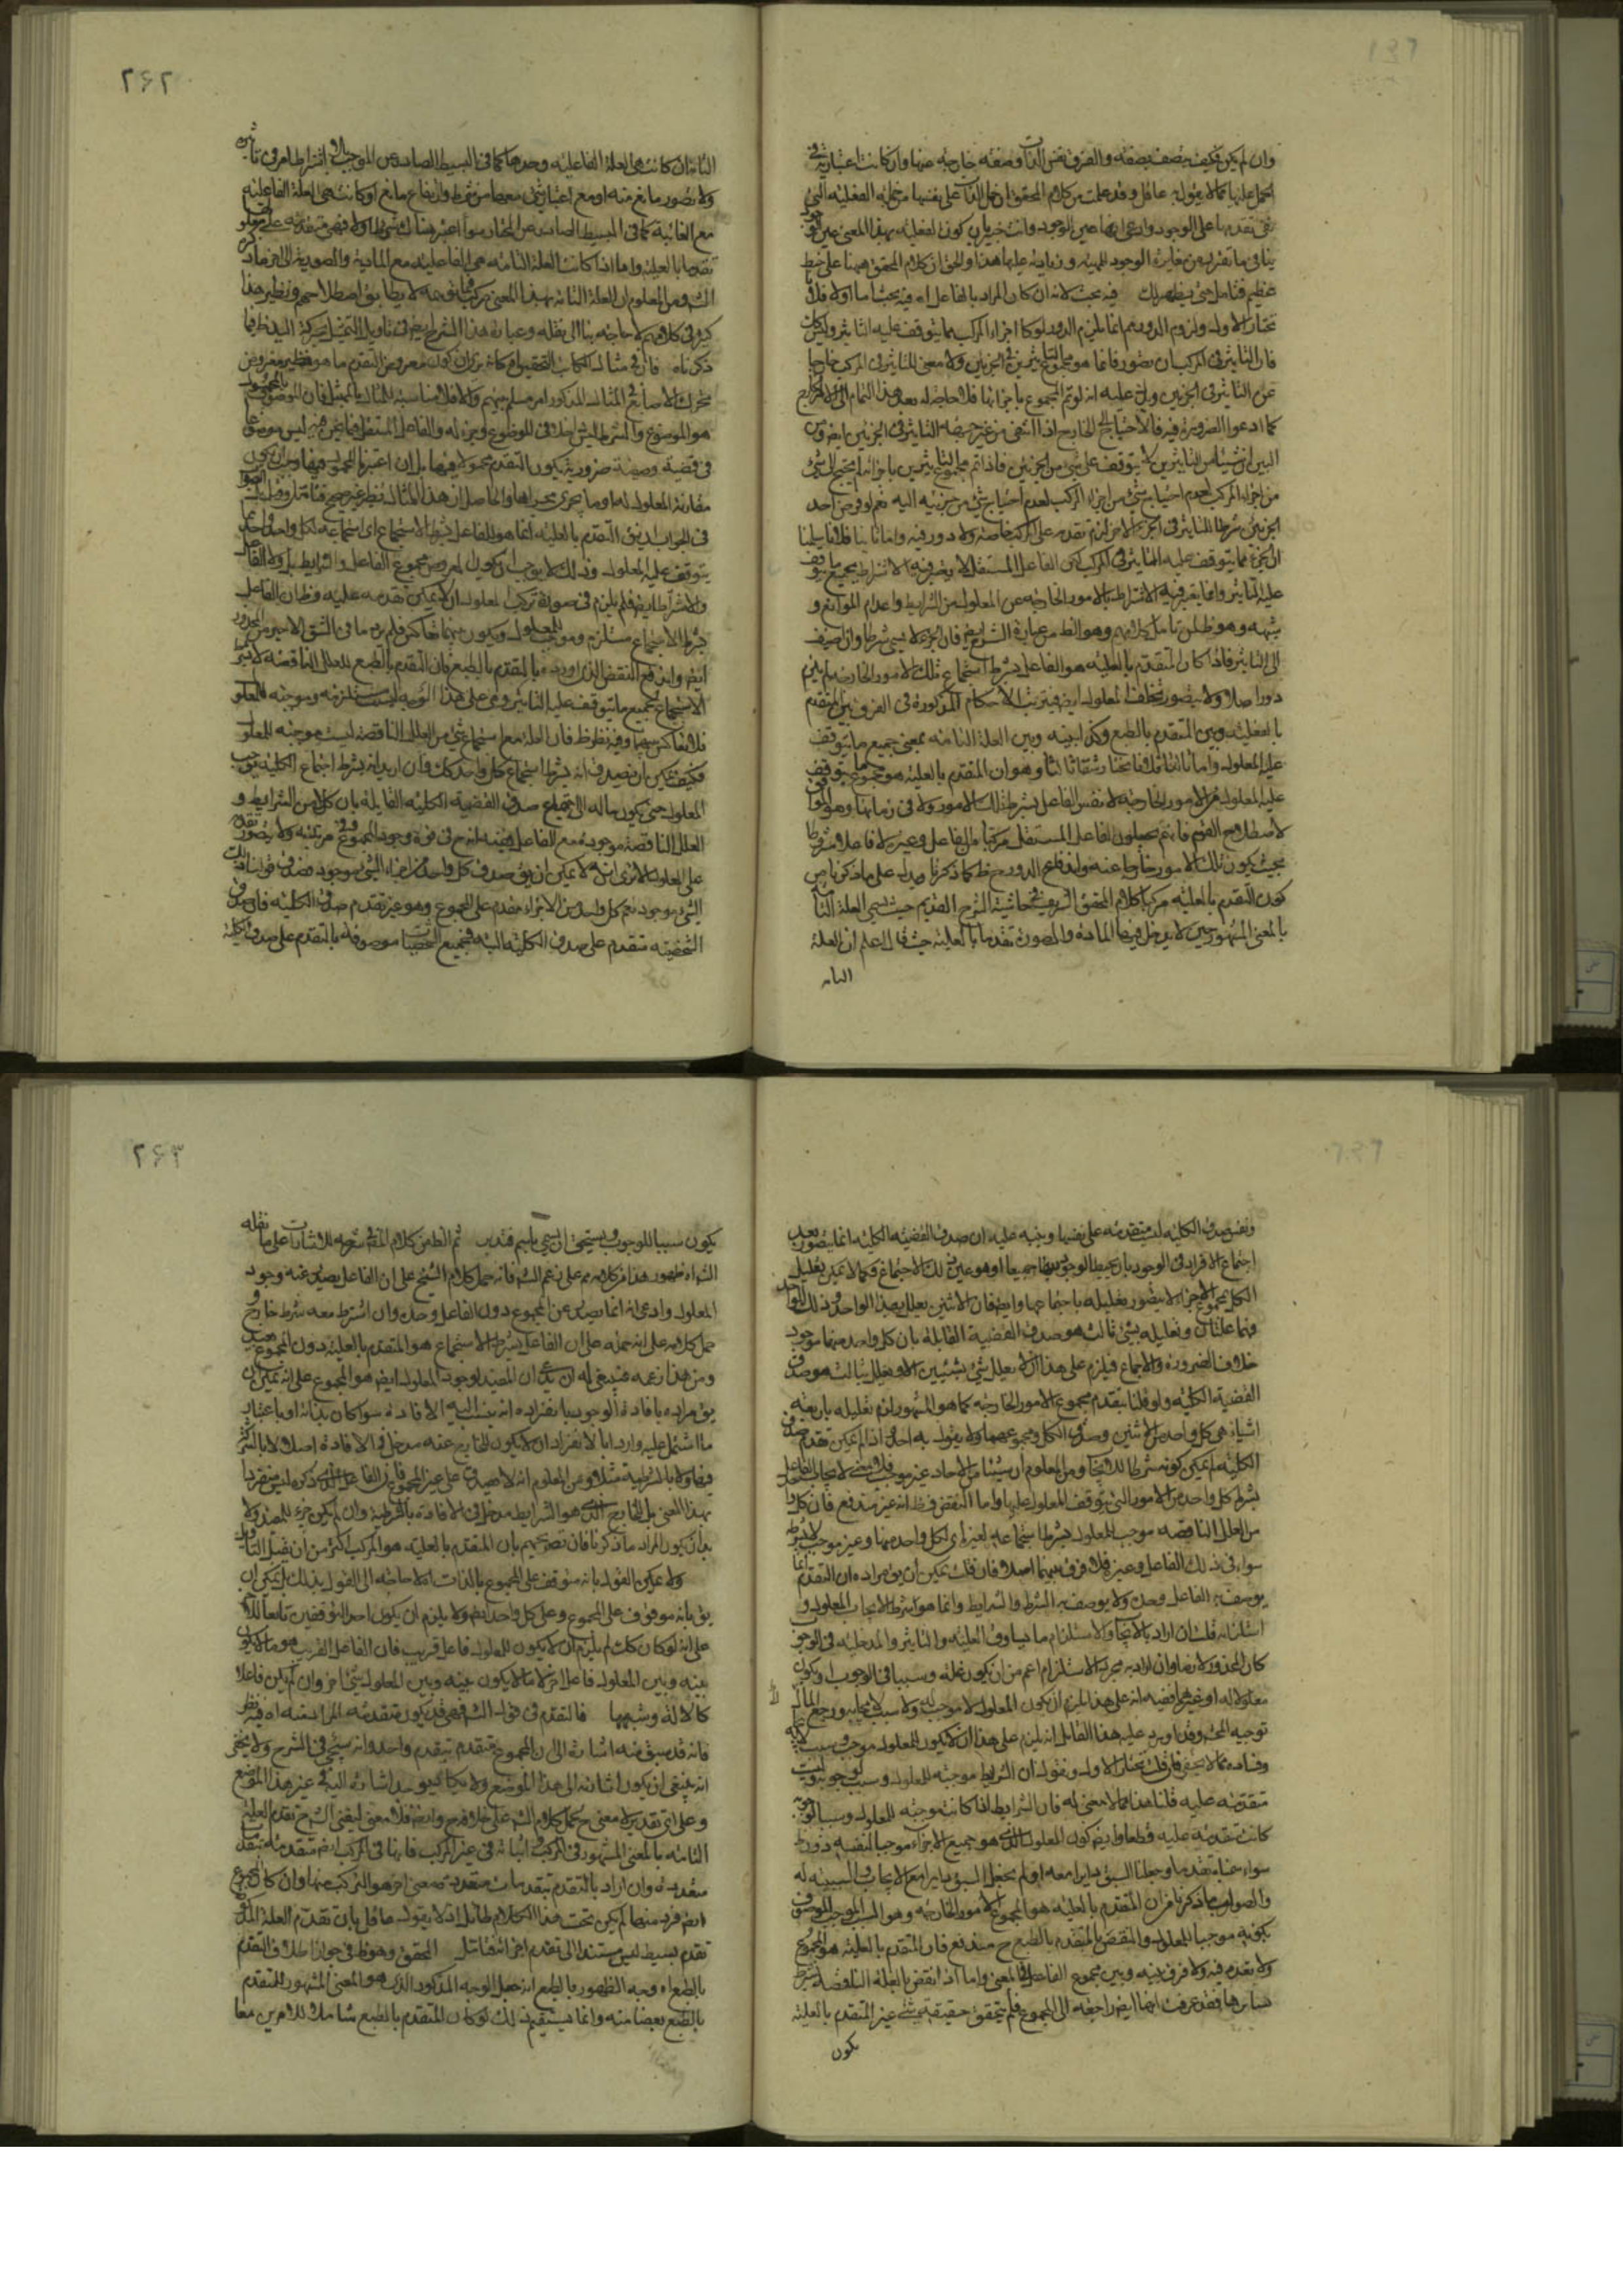 وان لم يكن فكيف يتصف بصفة والفرق نفس الذات وصفة خارجة عنها وان كانت اعتبارية
عليها مما لا يقول به عاقل وقد علمت من كلام المحقق ان حمل الذات على نفسها من
تقدمها على الوجود وادعى انها عين الوجود وانت خبير بان كون الفعلية بهذا المعنى عين
ينافي ما تقرر من مغايرة الوجود للمهية وزيادته عليها هذا والحق ان كلام المحقق ههنا على خبط
عظيم فتأمل حتى يظهر لك فيه بحث لانه ان كان المراد بالفاعل اه فيه بحث اما اولا فلانا
نختار الاول ولزوم الدور ثم انما يلزم الدور لو كان اجزاء المركب مما يتوقف عليه التاثير وليس كذلك
فان التاثير في المركب ان تصور فانما هو مجموع التاثيرين في الجزئين ولا معنى للتاثير في المركب خارجا
عن التاثير في الجزئين
كما ادعوا الضرورة فيه
البين ان شيئا من التاثيرين لا يتوقف على شئ من الجزئين فاذا تم مجموع التاثيرين باجزائه لم يحتج الى شئ
من اجزاء المركب لعدم احتياج شئ من اجزاء المركب لعدم احتياج شئ من جزئيه اليه نعم لو فرض احد
الجزئين شرطا للتاثير في الجزء الاخر لزم تقدمه على المركب خاصة ولا دور فيه واما ثانيا فلانا سلمنا
ان الجزء مما يتوقف عليه التاثير في المركب لكن الفاعل المستقل لا يعتبر فيه الا اشتراط بجميع ما يتوقف
عليه التاثير وانما يعتبر فيه الاشتراط بالامور الخارجة عن المعلول من الشرايط واعدام الموانع و
الى التاثير فاذا كان المتقدم بالعلية هو الفاعل بشرط اجتماع تلك الامور الخارجة لم يلزم
دور اصلا ولا يتصور تخلف المعلول ايضا فيترتب الاحكام المذكورة في الفرق بين المتقدم
بالعلية وبين المتقدم بالطبع وكذا بينه وبين العلة التامة بمعنى جميع ما يتوقف
عليه المعلول واما ثالثا فلانا نختار شقا ثالثا وهو ان المتقدم بالعلية هو مجموع ما يتوقف
عليه المعلول من الامور الخارجة لا نفس الفاعل بشرط تلك الامور ولا في زمانها وهو الموافق
لاصطلاح القوم فانهم يجعلون الفاعل المستقل مركبا من الفاعل وغيره
بحيث يكون تلك الامور خارجا عنه واندفاع الدور ح ظ كما ذكرنا ويدل على ما ذكرنا من
كون المتقدم بالعلية مركبا كلام المحقق الشريف في حاشية الشرح القديم حيث سمى العلة التامة
بالمعنى المشهور حين لا يدخل فيها المادة والصورة تقدما بالعلية حيث قال اعلم ان العلة
التامه
٢٤٢
التامة ان كانت هي العلة الفاعلية وحدها كما في البسيط الصادر عن الموجب بلا اشتراط امر في تاثيره
ولا تصور مانع منه او مع اعتبار شئ معها من شرط وارتفاع مانع او كانت هي العلة الفاعلية
مع الغائية كما في البسيط الصادر عن المختار سواء اعتبر هناك شئ اولا فهي متقدمة على المعلول
تقدما بالعلية واما اذا كانت العلة التامة هي الفاعلية مع المادية والصورية الى اخر ما ذكره
ومن المعلوم ان العلة التامة بهذا المعنى مركب فما توهمه لا يطابق اصطلاحهم ونظير هذا
كثير في كلامهم لا حاجة بنا الى نقله
ذكرناه
هو الموضوع والشرط ليس داخلا في الموضوع وجزء له والفاعل المستقل فيما نحن فيه ليس موضوعا
في قضية وصفية ضرورية يكون المتقدم محمولا فيها بل ان اعتبر
مقارنة المعلول لها وما يجرى مجراها والحاصل ان هذا المثال نظير غير صحيح فتأمل
في الجواب ان التقدم بالعلية انما هو للفاعل بشرط الاجتماع اي اجتماعه لكل واحد واحد مما
يتوقف عليه المعلول وذلك لا يوجب ان يكون المعروض مجموع الفاعل والشرايط بل ولا الفاعل
والاشتراط ايضا فلم يلزم في صورة تركب المعلول ان لا يمكن تقدمه عليه وظ ان الفاعل
بشرط الاجتماع مستلزم وموجب للمعلول ويكون بينهما تعاكس فلم يرد ما في الشق الاخير من المحذور
ايضا واندفع النقض الذي اورده بالمتقدم بالطبع فان المتقدم بالطبع للعلل الناقصة لا بشرط
الاجتماع بجميع ما يتوقف عليه التاثير وهي على هذا الوجه ليست مستلزمة وموجبة للمعلول
فلا تعاكس بينهما وفيه نظر ظ فان العلة مع اجتماع شئ من العلل الناقصة ليست موجبة للمعلول
فكيف يمكن ان يصدق انه بشرط اجتماع كل واحد كك وان اريد انه بشرط اجتماع الكل يوجب
المعلول حتى يكون ماله الى اجتماع صدق القضية الكلية القايلة بان كلا من الشرايط و
العلل الناقصة موجودة مع الفاعل ففيه انه ح في قوة وجود المجموع وفي مرتبته ولا يتصور تقدمه
على المعلول الا ترى انه لا يمكن ان يق صدق كل واحد من اجزاء الشئ موجود
الشئ موجود نعم كل واحد من الاجزاء مقدم على المجموع وهو غير تقدم صدق الكلية فان صدق
الشخصية متقدم على صدق الكلية البتة فجميع الشخصيات موصوفة بالتقدم على صدق الكلية
ونفس صدق الكلية ليست متقدمة على نفسها وفيه عليه ان صدق القضية الكلية انما يتصور بعد
اجتماع الافراد في الوجود بان يحيط الوجود بها جميعا او هو عين ذلك الاجتماع فكما لا يمكن تعليل
الكل بمجموع الاجزاء لا يتصور تعليله باجتماعهما وايضا فان الاثنين يعلل بهذا الواحد وذلك الواحد
فهما علتان وتعليله بشئ ثالث هو صدق القضية القايلة بان كل واحد منهما موجود
خلاف الضرورة والاجماع فيلزم على هذا ان لا يعلل شئ بشيئين الا ويعلل بثالث هو صدق
القضية الكلية ولو قلنا بتقدم مجموع الامور الخارجة كما هو المشهور لزم تعليله باربعة
اشياء هي كل واحد من الاثنين وصدق الكل ومجموعهما ولا يقول به احد
الكلية لم يمكن كونه شرطا للايجاب ومن المعلوم ان شيئا من الاحاد غير موجب
بشرط كل واحد من الامور التي يتوقف المعلول عليها واما النقض فظ انه غير مندفع فان كل واحد
من العلل الناقصة موجب للمعلول بشرط اجتماعه لغيره اي لكل واحد منها وغير موجب لا بشرط
سواء في ذلك الفاعل وغيره فلا فرق بينهما اصلا فان قلت يمكن ان يق مراده ان التقدم انما
يوصف به الفاعل وحده ولا يوصف به الشرط والشرايط وانما هو شرط لايجاب المعلول و
استلزامه قلت ان اراد بالايجاب والاستلزام ما يساوق العلية والتاثير والمدخلية في الوجود
كان المحذور لازما وان اراد به مجرد الاستلزام اعم من ان يكون علة وسببا في الوجوب او يكون
معلولا له او غيرهما ففيه انه على هذا يلزم ان يكون المعلول لا موجب له ولا سبب لايجابه ويرجع المآل
توجيه المحقق وقد اورد عليه هذا القائل انه يلزم على هذا ان لا يكون للمعلول موجب وسبب
وفساده مما لا يخفى فان قلت نختار الاول ونقول ان الشرايط موجبة للمعلول وسبب لوجوبه وليست
متقدمة عليه قلنا هذا مما لا معنى له فان الشرايط اذا كانت موجبة للمعلول وسببا لوجوبه
كانت متقدمة عليه قطعا وايضا كون المعلول الذي هو جميع الاجزاء موجبا لنفسه دور ظ
سواء سميناه تقدما وجعلنا السبق دايرا معه او لم نجعل السبق دايرا مع الايجاب والسببية له
والصواب ما ذكرنا من ان المتقدم بالعلية هو المجموع الامور الخارجة وهو السبب الموجب الموصوف
بكونه موجبا للمعلول والنقض بالمتقدم بالطبع ح مندفع فان المتقدم بالعلية هو المجموع
ولا تعدد فيه ولا فرق بينه وبين مجموع الفاعل في المعنى واما اذا نقض بالعلة الناقصة بشرط
سايرها فقد عرفت انها ايضا راجعة الى المجموع فلم يتحقق حقيقة شئ غير المتقدم بالعلية
يكون
٢٤٣
يكون سببا للوجوب ويستحق ان يسمى باسم فتدبر ثم الظ من كلام المحقق في شرحه للاشارات على ما نقله
الش اه ظهور هذا من كلامه م على زعم الش فانه حمل كلام الشيخ على ان الفاعل يصدر عنه وجود
المعلول وادعى انه انما يصدر عن المجموع دون الفاعل وحده وان اشترط معه شرط خارج و
حمل كلامه على انه حمله على ان الفاعل بشرط الاجتماع هو المتقدم بالعلية دون المجموع
ومن هذا زعمه فينبغي له ان يدعى ان المفيد لوجود المعلول ايضا هو المجموع على انه يمكن ان
يق مراده بافادة الوجود بانفراده انه ينسب اليه الافادة سواء كان بذاته او باعتبار
ما اشتمل عليه واراد بالانفراد ان لا يكون للخارج عنه مدخل في الافادة اصلا لا بالتاثير
فيها ولا بالشرطية مثلا ومن المعلوم انه لا يصدق على غير المجموع فان الفاعل الذي ذكره ليس منفردا
بهذا المعنى بل للخارج الذي هو الشرايط مدخل في الافادة بالشرطية وان لم يكن جزء للمصدر ولا
بد ان يكون المراد ما ذكرنا فان تصريحهم بان المتقدم بالعلية هو المركب اكثر من ان يقبل التاويل
ولا يمكن القول بانه متوقف على المجموع بالذات اه لا حاجة الى القول بذلك بل يمكن ان
يق بانه موقوف على المجموع وعلى كل واحد ايضا ولا يلزم ان يكون احد التوقفين تابعا للاخر
على انه لو كان كك لم يلزم ان لا يكون للمعلول فاعل قريب فان الفاعل القريب هو ما لا يكون
بينه وبين المعلول فاعل اخر لا ما لا يكون بينه وبين المعلول شئ اخر وان لم يكن فاعلا
كالالة وشبهها فالتقدم في قول الش فهي قد يكون متقدمة المراد منه اه فيه نظر
فانه قد سبق منه اشارة الى ان المجموع متقدم بتقدم واحد وانه سيجئ في الشرح ولا يخفى
انه ينبغي ان يكون اشارة الى هذا الموضع ولا يكاد يوجد اشارة اليه في غير هذا الموضع
وعلى اي تقدير لا معنى ح لحمل كلام الش على خلافه وايضا فلا معنى لنفي الش ح تقدم العلة
التامة بالمعنى المشهور في المركب واثباته في غير المركب فانها في المركب ايضا متقدمة بتقدمات
متعددة وان اراد بالتقدم بتقدمات متعددة معنى اخر هو المركب منها وان كان المجموع
ايضا فرد منها لم يكن تحت هذا الكلام طائل اذ لا يقول عاقل بان تقدم العلة المركبة
تقدم بسيط ليس مستندا الى تقدم اجزائه فتأمل المحقق وهو ظ في جواز اطلاق التقدم
بالطبع اه وجه الظهور بالطبع انه جعل الوجه المذكور الذي هو المعنى المشهور للمتقدم
بالطبع بعضا منه وانما يستقيم ذلك لو كان المتقدم بالطبع شاملا للامرين معا